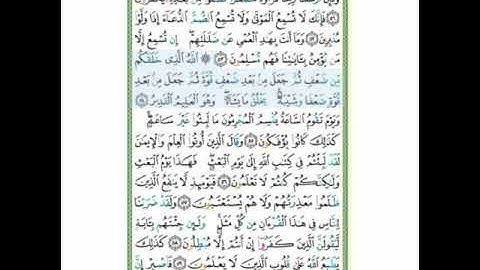 فَإِنَّكَ لَا تُسْمِعُ الْمَوْتَىٰ وَلَا تُسْمِعُ الصُّمَّ الدُّعَاءَ إِذَا وَلَّوْا
مُدْبِرِينَ ﴿٥٢﴾ وَمَا أَنتَ بِهَادِ الْعُمْيِ عَن ضَلَالَتِهِمْ ۖ إِن تُسْمِعُ إِلَّا
مَن يُؤْمِنُ بِآيَاتِنَا فَهُم مُّسْلِمُونَ ﴿٥٣﴾ ۞ اللَّهُ الَّذِي خَلَقَكُم
مِّن ضَعْفٍ ثُمَّ جَعَلَ مِن بَعْدِ ضَعْفٍ قُوَّةً ثُمَّ جَعَلَ مِن بَعْدِ
قُوَّةٍ ضَعْفًا وَشَيْبَةً ۚ يَخْلُقُ مَا يَشَاءُ ۖ وَهُوَ الْعَلِيمُ الْقَدِيرُ ﴿٥٤﴾
وَيَوْمَ تَقُومُ السَّاعَةُ يُقْسِمُ الْمُجْرِمُونَ مَا لَبِثُوا غَيْرَ سَاعَةٍ ۚ
كَذَٰلِكَ كَانُوا يُؤْفَكُونَ ﴿٥٥﴾ وَقَالَ الَّذِينَ أُوتُوا الْعِلْمَ وَالْإِيمَانَ
لَقَدْ لَبِثْتُمْ فِي كِتَابِ اللَّهِ إِلَىٰ يَوْمِ الْبَعْثِ ۖ فَهَٰذَا يَوْمُ الْبَعْثِ
وَلَٰكِنَّكُمْ كُنتُمْ لَا تَعْلَمُونَ ﴿٥٦﴾ فَيَوْمَئِذٍ لَّا يَنفَعُ الَّذِينَ
ظَلَمُوا مَعْذِرَتُهُمْ وَلَا هُمْ يُسْتَعْتَبُونَ ﴿٥٧﴾ وَلَقَدْ ضَرَبْنَا
لِلنَّاسِ فِي هَٰذَا الْقُرْآنِ مِن كُلِّ مَثَلٍ ۚ وَلَئِن جِئْتَهُم بِآيَةٍ
لَّيَقُولَنَّ الَّذِينَ كَفَرُوا إِنْ أَنتُمْ إِلَّا مُبْطِلُونَ ﴿٥٨﴾ كَذَٰلِكَ
يَطْبَعُ اللَّهُ عَلَىٰ قُلُوبِ الَّذِينَ لَا يَعْلَمُونَ ﴿٥٩﴾ فَاصْبِرْ إِنَّ